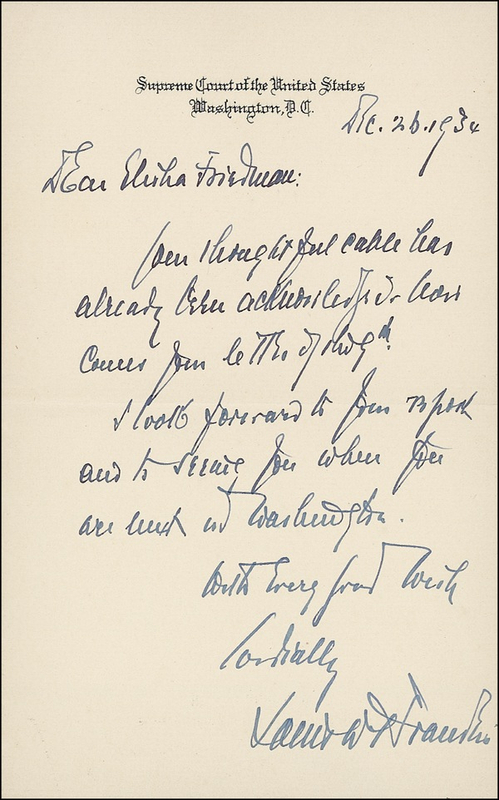 Supreme Court of the United States
Washington, D.C.
Dec. 26. 1934
Dear Elisha Friedman:
Your thoughtful cable has
already been acknowledged. Now
comes your letter of
I look forward to your report
and to seeing you when you
are next in Washington.
With every good wish
Cordially
Louis D Brandeis